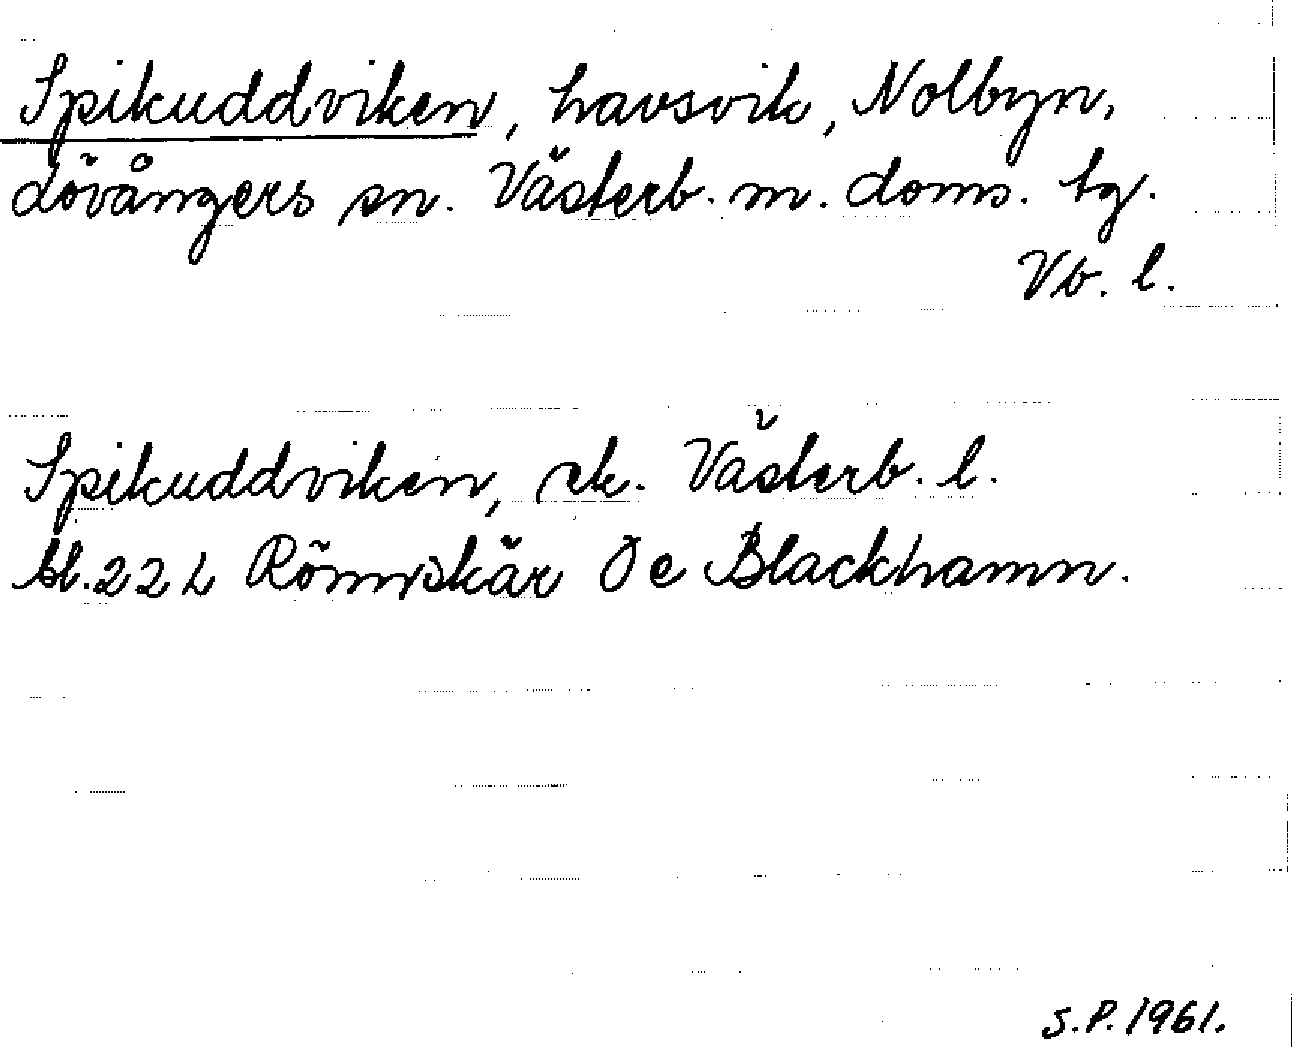 Spikuddviken, havsvik, Nolbyn,
Lövångers sn. Västerb. m. doms. tg.
Vb. l.
Spikuddviken, ek. Västerb. l.
bl. 22 L Rönnskär Ö e Blackhamn.
S.P. 1961.